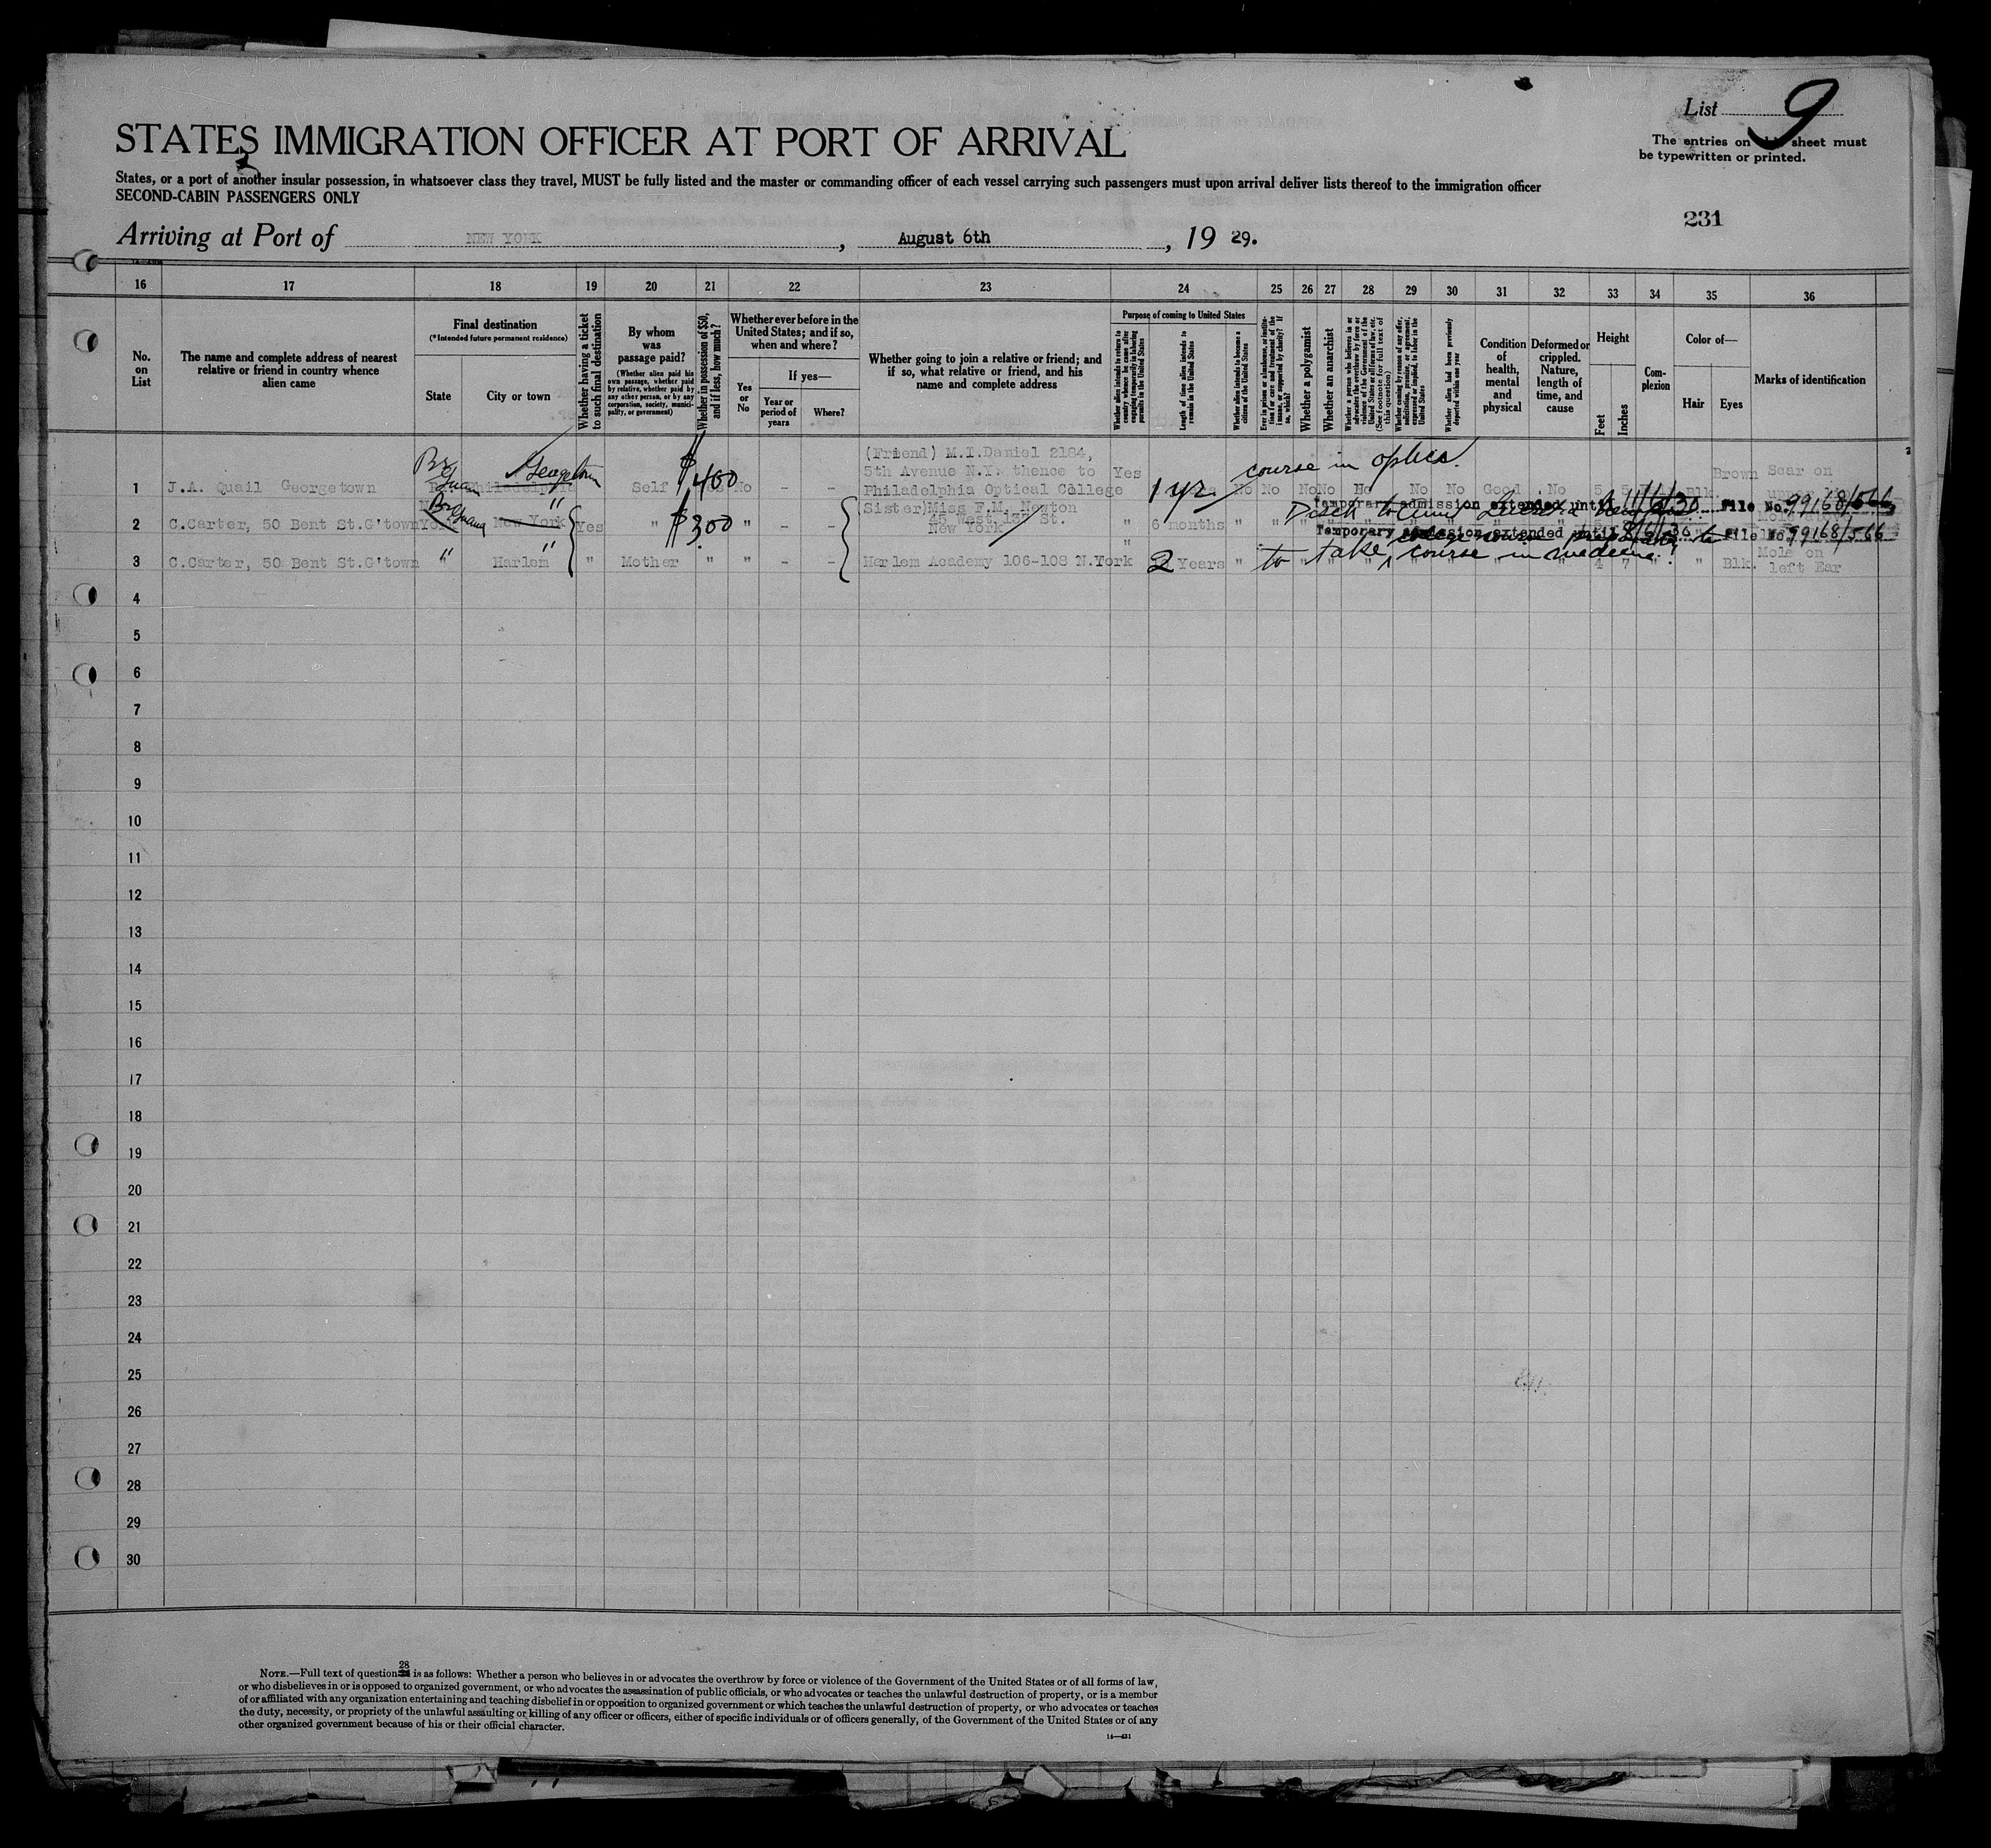 List 9
The entries on this sheet must
be typewritten or printed.
STATES IMMIGRATION OFFICER AT PORT OF ARRIVAL
States, or a port of another insular possession, in whatsoever class they travel, MUST be fully listed and the master or commanding officer of each vessel carrying such passengers must upon arrival deliver lists thereof to the immigration officer
SECOND-CABIN PASSENGERS ONLY
231
Arriving at Port of NEW YORK, August 6th, 19 29.
16 17 18 19 20 21 22 23 24 25 26 27 28 29 30 31 32 33 34 35 36
No. on List
The name and complete address of nearest relative or friend in country whence alien came
Final destination
(*Intended future permanent residence)
State
City or town
Whether having a ticket to such final destination
By whom was passage paid?
(Whether alien paid his own passage, whether paid by relative, whether paid by any other person, or by any corporation, society, municipality, or government)
Whether in possession of $50, and if less, how much?
Whether ever before in the United States; and if so, when and where?
Yes or No
If yes—
Year or period of years
Where?
Whether going to join a relative or friend; and if so, what relative or friend, and his name and complete address
Purpose of coming to United States
Whether alien intends to return to country whence he came after engaging temporarily in laboring pursuits in the United States
Length of time alien intends to remain in the United States
Whether alien intends to become a citizen of the United States
Ever in prison or almshouse, or institution for care and treatment of the insane, or supported by charity? If so, which?
Whether a polygamist
Whether an anarchist
Whether a person who believes in or advocates the overthrow by force or violence of the Government of the United States or all forms of law, etc. (See footnote for full text of this question)
Whether coming by reason of any offer, solicitation, promise, or agreement, expressed or implied, to labor in the United States
Whether alien had been previously deported within one year
Condition of health, mental and physical
Deformed or crippled. Nature, length of time, and cause
Height
Feet
Inches
Complexion
Color of—
Hair
Eyes
Marks of identification
1 J.A. Quail Georgetown Br Guan Georgetown Philadelphia Self $400 No - - (Friend) M.I.Daniel 2184,
5th Avenue N.Y. thence to
Philadelphia Optical College Yes 1 yr. course in optics. No No No No No No No Good No 5 5 Blk. Brown Scar on
2 C.Carter, 50 Bent St.G'town Br Guiana " New York Yes " $300 " - - (Sister)Miss F.M. Newton
45 West 137 St.
New York " 6 months "
Temporary admission extended until File No. 99168/566
Temporary admission extended until 8/6/36 File No. 99168/566
3 C.Carter, 50 Bent St.G'town " " Harlem " Mother " " - - Harlem Academy 106-108 N.York " 2 Years " to take course in medicine. 4 7 " " Blk. Mole on
left Ear
4
5
6
7
8
9
10
11
12
13
14
15
16
17
18
19
20
21
22
23
24
25
26
27
28
29
30
28
NOTE.—Full text of question is as follows: Whether a person who believes in or advocates the overthrow by force or violence of the Government of the United States or of all forms of law,
or who disbelieves in or is opposed to organized government, or who advocates the assassination of public officials, or who advocates or teaches the unlawful destruction of property, or is a member
of or affiliated with any organization entertaining and teaching disbelief in or opposition to organized government or which teaches the unlawful destruction of property, or who advocates or teaches
the duty, necessity, or propriety of the unlawful assaulting or killing of any officer or officers, either of specific individuals or of officers generally, of the Government of the United States or of any
other organized government because of his or their official character.
14—431